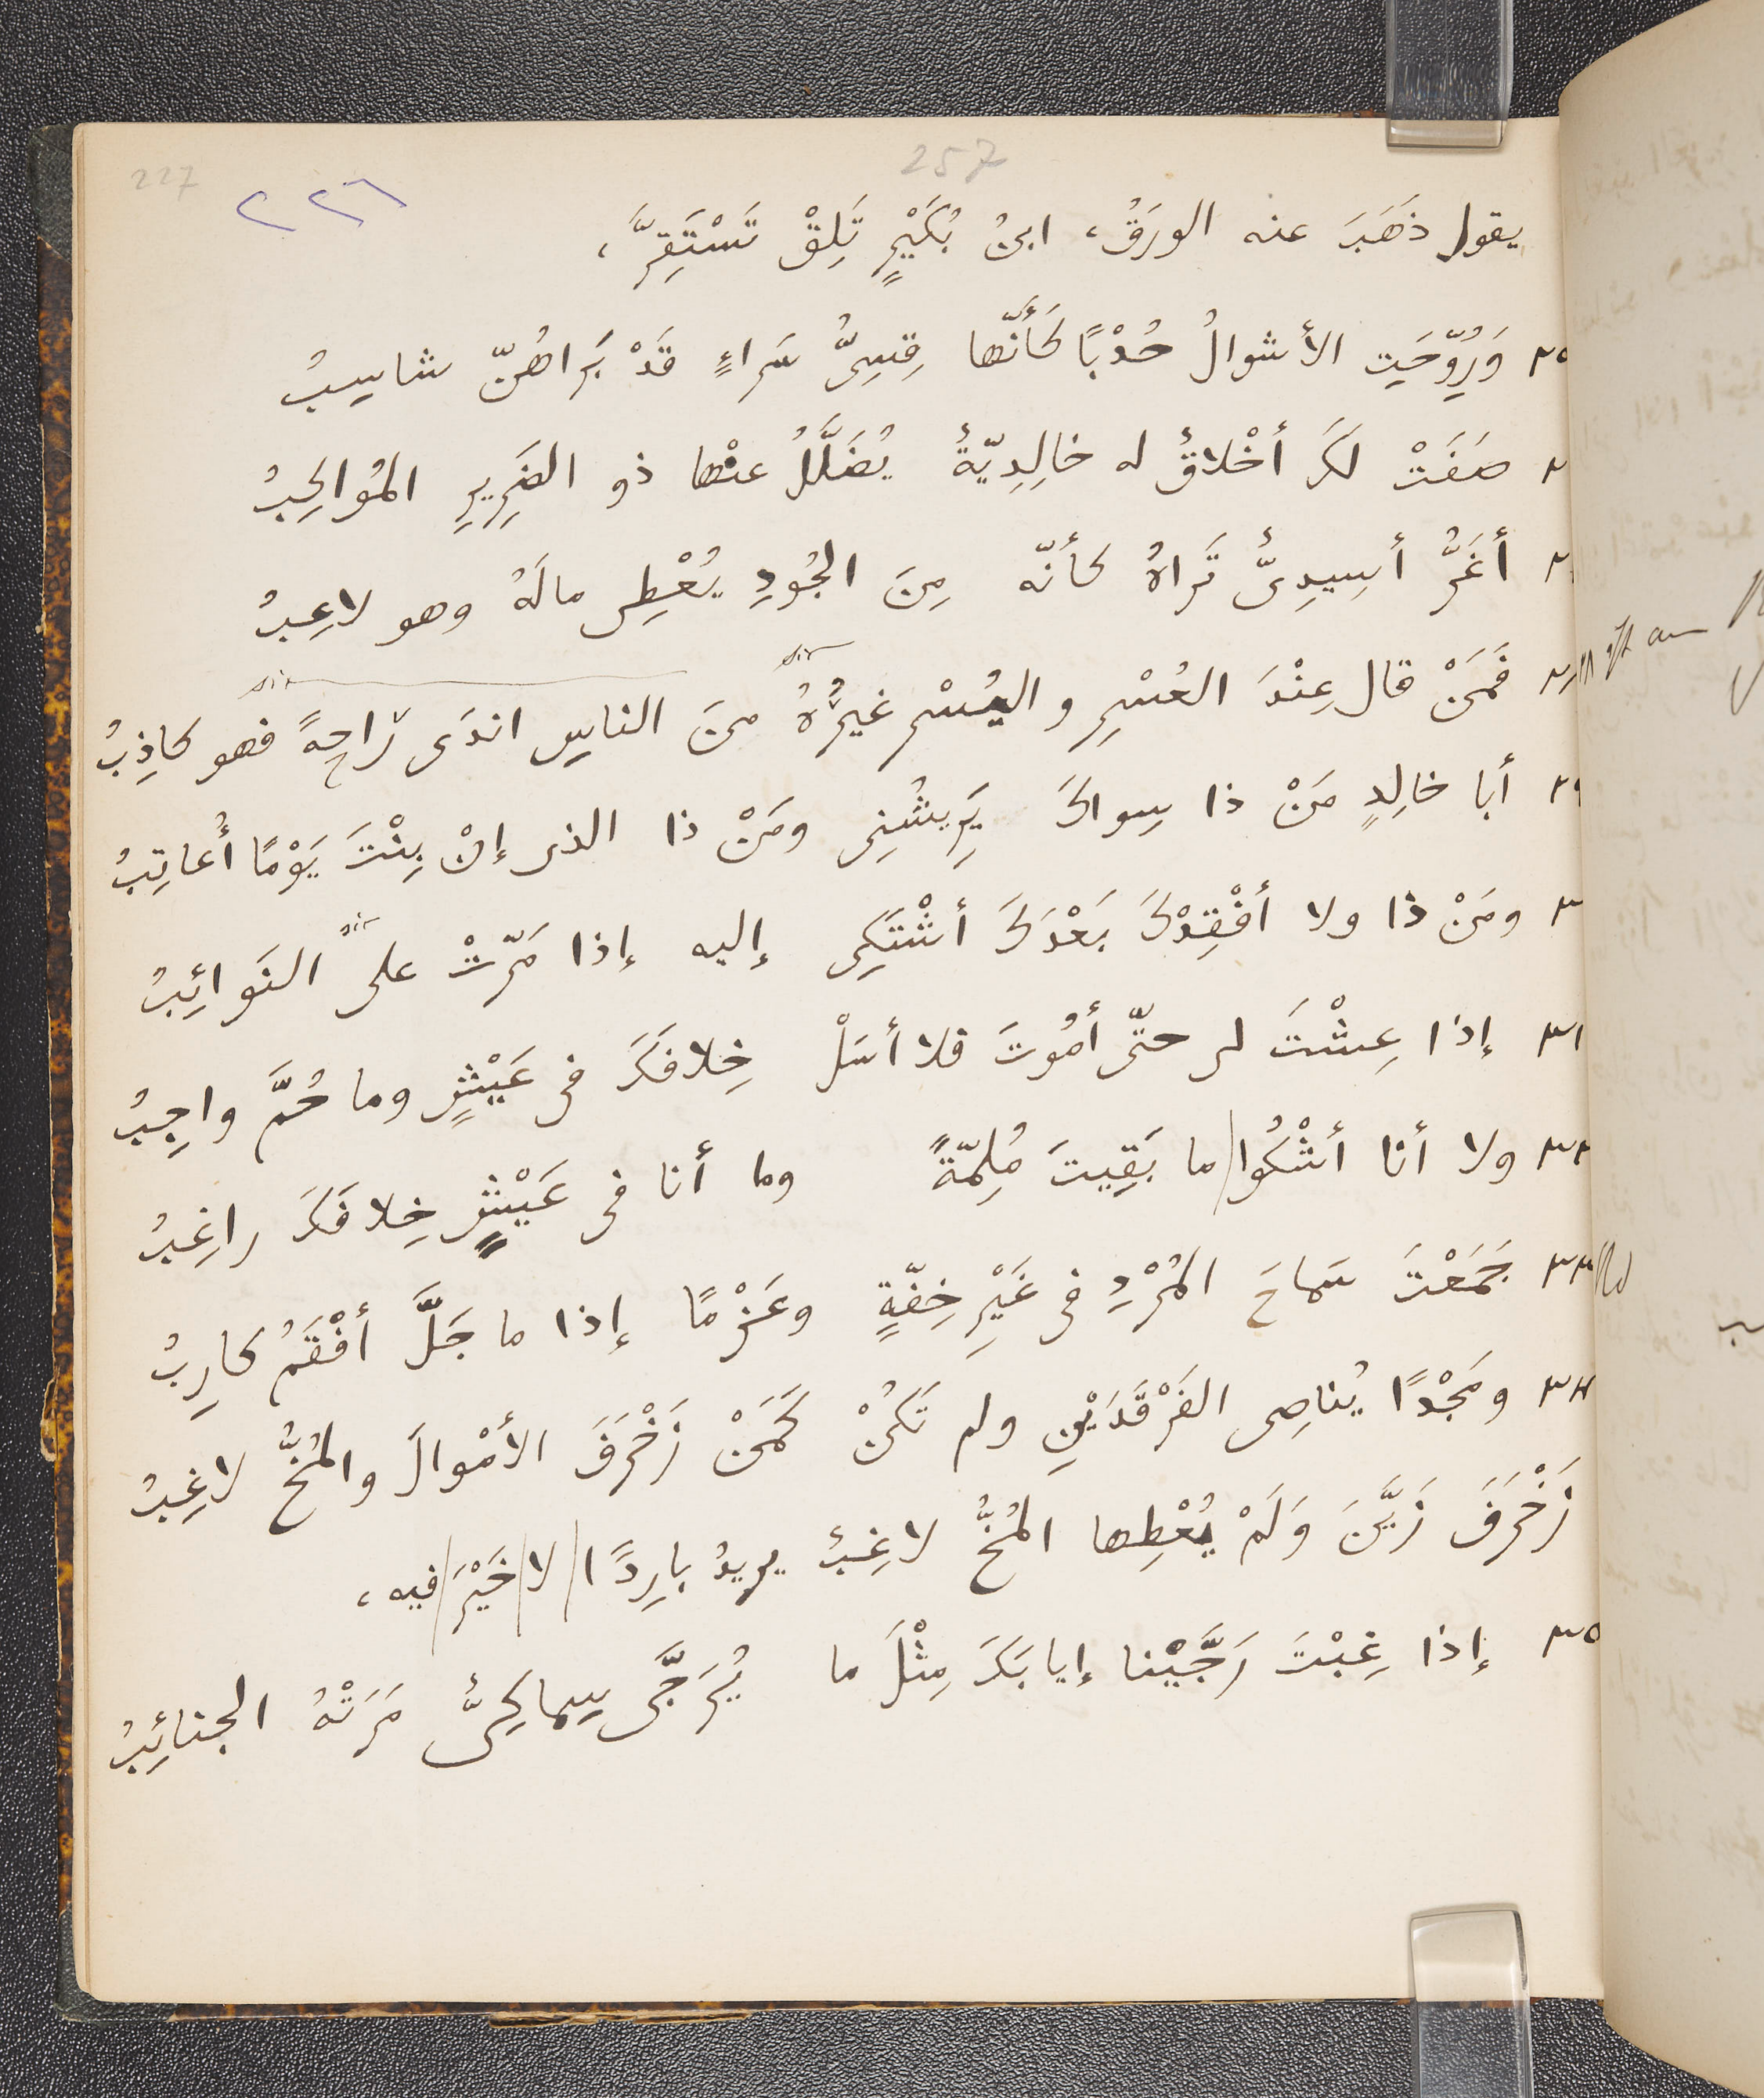 257
227
٢٢٦
يقول ذَهَبَ عنه الورَقُ، ابنُ بُكَيْرٍ تَلِقْ تَسْتَقِرَّ،
٢٥ وَرُوِّحَتِ الأشوالُ حُدْبًا كَأَنّها قِسِىُّ سَراءٍ قَدْ بَراهُنّ شاسِبُ
صَفَتْ لَكَ أخْلاقٌ له خالِدِيّةٌ يُضَلَّلُ عنْها ذو الضَرِيرِ المُواكِبُ
أغَرُّ أسِيدِىٌّ تَراهُ كأنّه مِنَ الجُودِ يُعْطِى مالَهُ وهو لاعِبُ
فَمَنْ قال عِنْدَ العُسْرِ و اليُسْرِ غيرُهُ منَ الناسِ اندَى رَاحِةً فهو كاذِبُ
أبا خالِدٍ مَنْ ذا سِواكَ يَرِيشُنِى ومَنْ ذا الذى إنْ بِنْتَ يَوْمًا أُعاتِبُ
ومَنْ ذا ولا أفْقِدْكَ بَعْدَكَ أشْتَكِى إليه إذا مَرّتْ علىّ النَوائِبُ
٣١ إذا عِشْتَ لى حتّى أمُوتَ فلا أسَلْ خِلافَكَ فى عَيْشٍ وما حُمَّ واجِبُ
٣٢ ولا أنا أشْكُوا ما بَقِيتَ مُلِمّةً وما أنا فى عَيْشٍ خِلافَكَ راغِبُ
٣٣ جَمَعْتَ سَماحَ المُرْدِ فى غَيْرِ خِفّةٍ وعَزْمًا إذا ما جَلَّ أفْقَمُ كارِبُ
٣٤ ومَجْدًا يُناصِى الفَرْقَدَيْنِ ولم تَكُنْ كَمَنْ زَخْرَفَ الأمْوالَ والمُخُّ لاغِبُ
زَخْرَفَ زَيَّنَ وَلَمْ يُعْطِها المُخُّ لاغِبُ يريدُ بارِدًا لا خَيْرَ فيه،
٣٥ إذا غِبْتَ رَجَّيْنا إيابَكَ مِثْلَ ما يُرَجَّى سِماكِىٌّ مَرَتْهُ الجنائِبُ